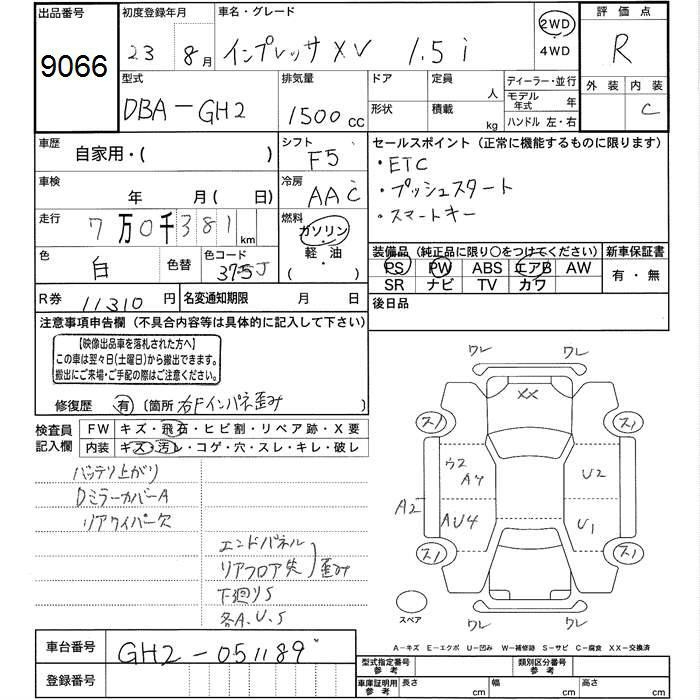 出品番号
9066
初度登録年月
23 8月
車名・グレード
インプレッサ XV 1.5 i
2WD
・
4WD
評価点
R
外装 内装
C
型式
DBA-GH2
排気量
1500 cc
ドア
形状
定員 人
積載 kg
ディーラー・並行
モデル年式 年
ハンドル 左・右
車歴
自家用・( )
シフト
F5
車検
年 月( 日)
冷房
AAC
走行
7万0千381km
燃料
ガソリン
軽油
( )
色
白
色替
色コード
375J
R券 11310円
名変通知期限 月 日
セールスポイント(正常に機能するものに限ります)
・ETC
・プッシュスタート
・スマートキー
装備品(純正品に限り○をつけてください)
PS PW ABS エアB AW
SR ナビ TV カワ
新車保証書
有・無
後日品
注意事項申告欄(不具合内容等は具体的に記入して下さい)
【映像出品車を落札された方へ】
この車は翌々日(土曜日)から搬出できます。
搬出にご来場・ご手配の際はご注意ください。
修復歴 有(箇所 右Fインパネ歪み )
検査員
記入欄
FW キズ・飛石・ヒビ割・リペア跡・X要
内装 キズ・汚レ・コゲ・穴・スレ・キレ・破レ
バッテリ上がり
Dミラーカバー A
リアワイパー欠
エンドパネル
リアフロア先 歪み
下廻りS
各A.U.S
ワレ ワレ
XX
スノ スノ
ウス
A4
U2
A2
AU4
U1
スノ スノ
スペア
ワレ ワレ
A-キズ E-エクボ U-凹み W-補修跡 S-サビ C-腐食 XX-交換済
車台番号
GH2-051189
登録番号
型式指定番号
参考
類別区分番号
参考
車庫証明用
参考
長さ cm
幅 cm
高さ cm